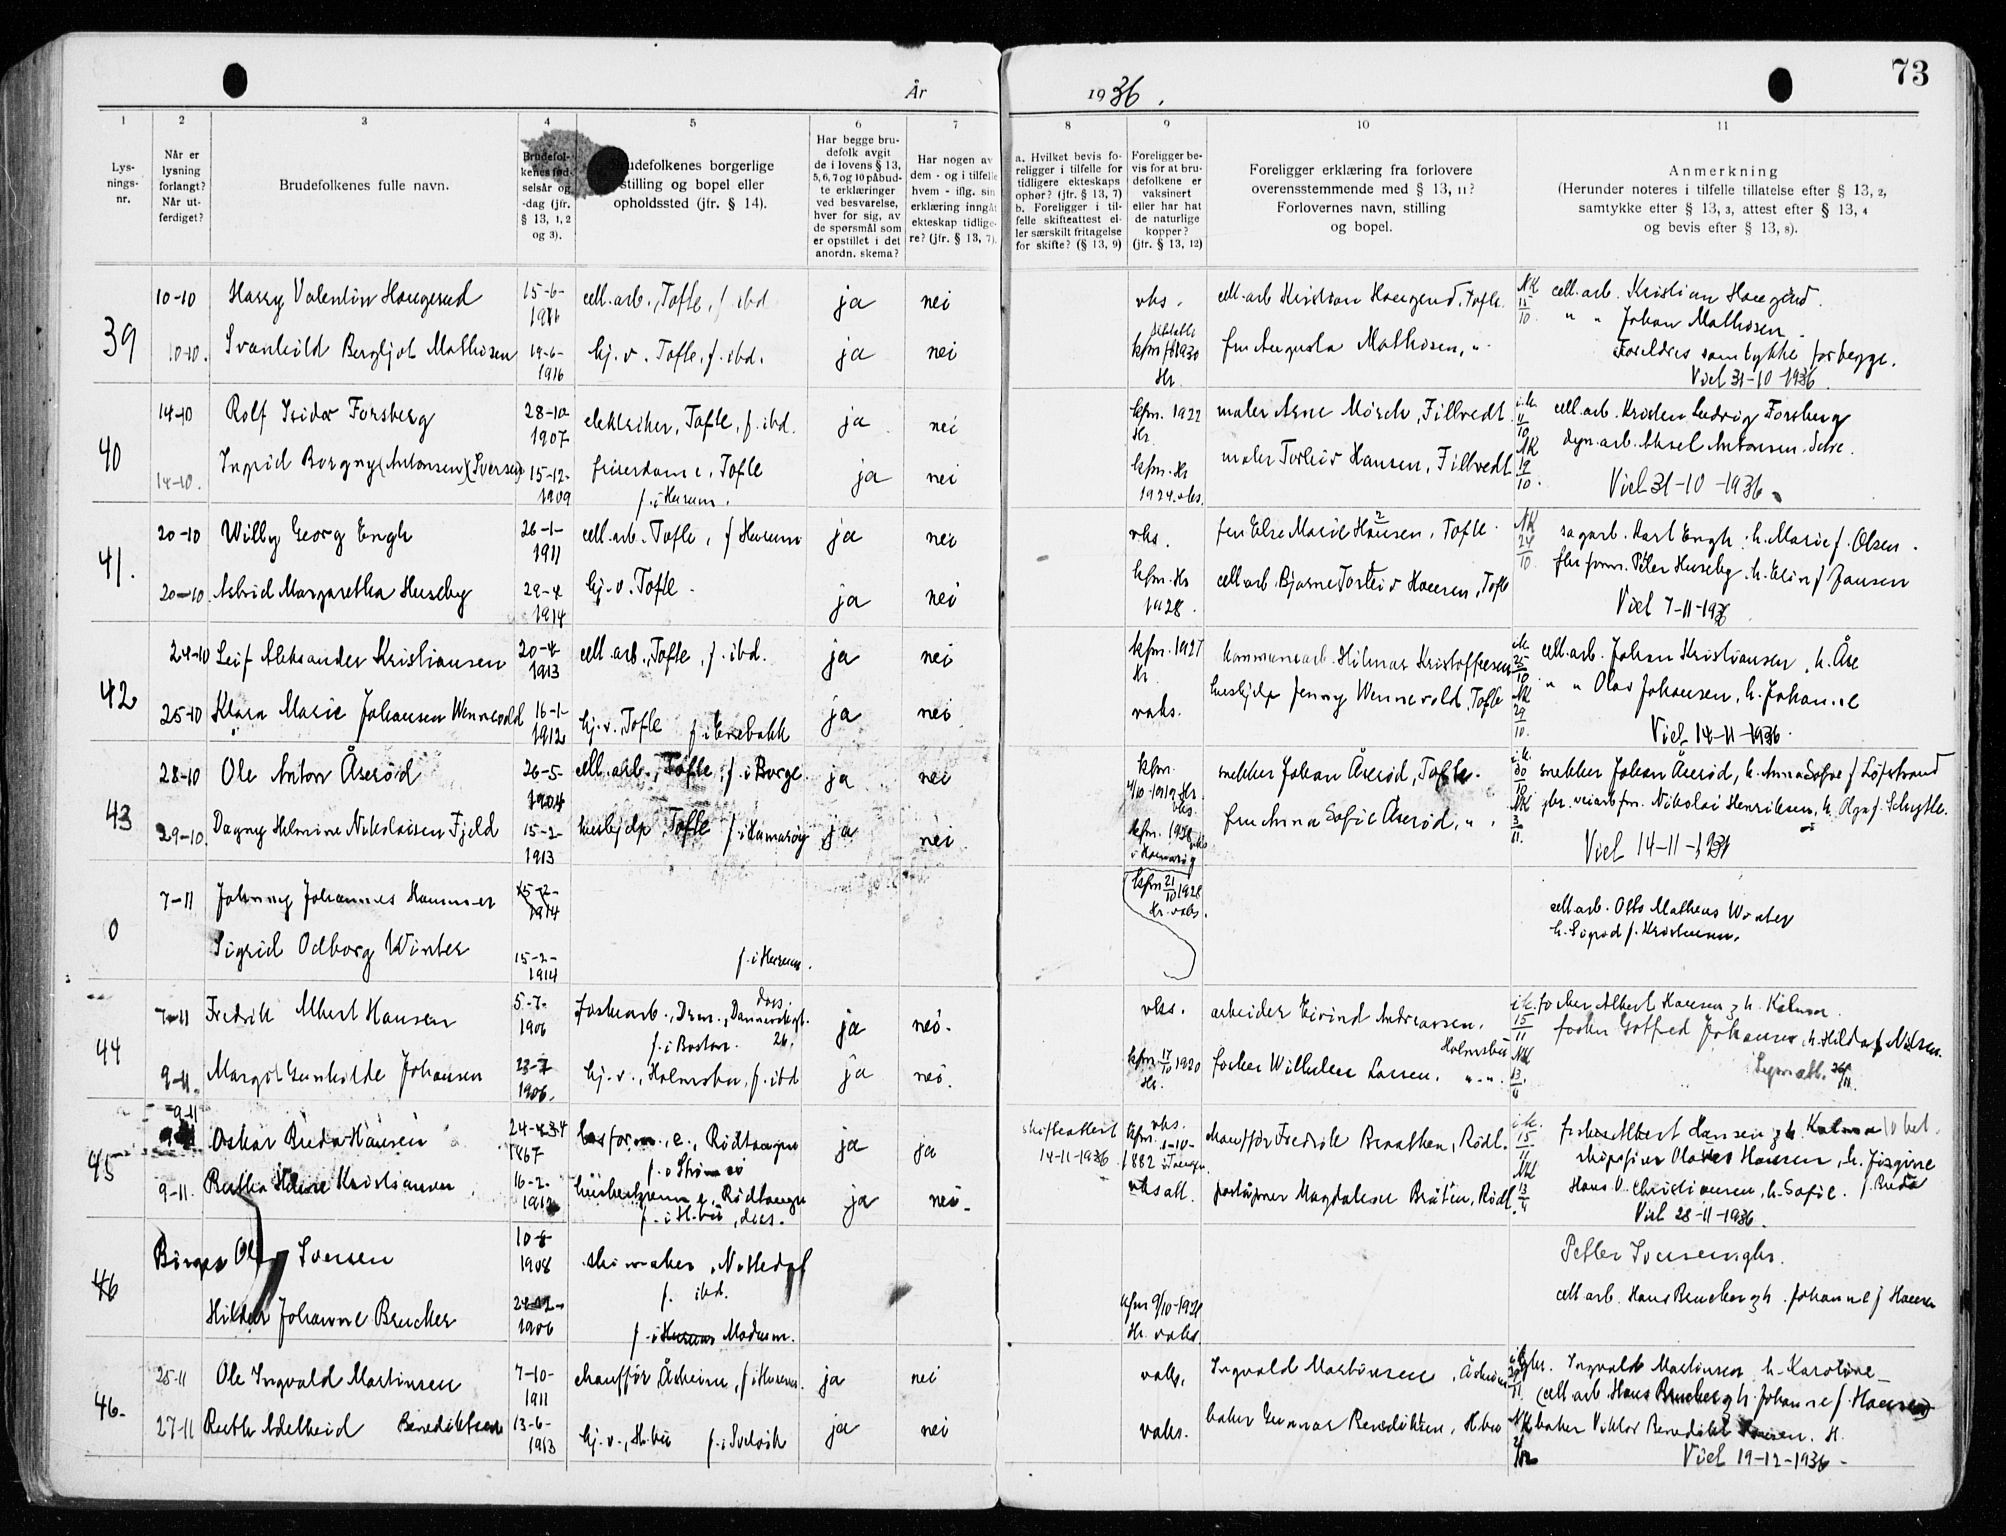 73
År 1936.
1 2 3 4 5 6 7 8 9 10 11
Lys-
nings-
nr.
Når er
lysning
forlangt?
Når ut-
ferdiget?
Brudefolkenes fulle navn.
Brudefol-
kenes fød-
selsår og
-dag (jfr.
§ 13, 1, 2
og 3).
udefolkenes borgerlige
stilling og bopel eller
opholdssted (jfr. § 14).
Har begge bru-
defolk avgit
de i lovens § 13,
5, 6, 7 og 10 påbud-
te erklæringer
ved besvarelse,
hver for sig, av
de spørsmål som
er opstillet i det
anordn. skema?
Har nogen av
dem - og i tilfelle
hvem - iflg. sin
erklæring inngåt
ekteskap tidlige-
re? (jfr. § 13, 7).
a. Hvilket bevis fo-
religger i tilfelle for
tidligere ekteskaps
ophør? (jfr. § 13, 7)
b. Foreligger i til-
felle skifteattest el-
ler særskilt fritagelse
for skifte? (§ 13, 9)
Foreligger be-
vis for at bru-
defolkene er
vaksinert
eller har hat
de naturlige
kopper?
(jfr. § 13, 12)
Foreligger erklæring fra forlovere
overensstemmende med § 13, 11?
Forlovernes navn, stilling
og bopel.
Anmerkning
(Herunder noteres i tilfelle tillatelse efter § 13, 2,
samtykke efter § 13, 3, attest efter § 13, 4
og bevis efter § 13, 8).
39
10-10 Harry Valentin Haugerud 15-6- cell.arb., Tofte, f. ibd ja nei vks. cell.arb Kristian Haugerud, Tofte NK 11/10 cell.arb. Kristian Haugerud.
1916
" " Johan Mathisen
10-10. Svanhild Bergljot Mathisen 19-6- hj.v. Tofte, f. ibd. ja nei fru Augusta Mathisen, " Foreldres samtykke for begge.
1916 Hr. Viet 31-10 1936
40
14-10 Rolf Isidor Forsberg 28-10- elektriker, Tofte, f. ibd. ja nei kfm. 1922 maler Arne Mørch, Filtvedt cell.arb. Kristen Ludvig Forsberg
1907 Hr. 11/10 Aksel Antonsen
14-10. Ingrid Borgny (Antonsen) (Iversen) 15-12- Tofte ja nei kfm. Hr maler Hansen, Filtvedt NK 19/10.
1909 f. i Hurum. 1924 vks. Viet 31-10-1936
41.
20-10 Willy Georg Engh 26-1- cell.arb. Tofte, f Hurum ja nei vks. fru Else Marie Hansen, Tofte. NK 24/10 sagarb. Karl Engh. h. Marie f. Olsen.
1911
20-10 Astrid Margaretha Huseby 29-4 hj.v. Tofte. ja nei kfm. Hr cell.arb Bjarne Hansen, Tofte Peter Huseby, h. Elin f Jansen
1914 1928. Viet 7-11-1936
42
24-10 Leif Aleksander Kristiansen 20-4- cell.arb., Tofte, f. ibd. ja nei kfm. 1927 kommunearb. Hilmar Kristoffersen 25/10 cell.arb. Johan Kristiansen, h. Åse
1913 Hr
25-10 Klara Marie Johansen Wennevold 16-1- hj.v., Tofte f i Enebakk ja nei vaks. hushjelp Jenny Wennevold, Tofte NK 29/10. " " Olav Johansen, h. Johanne
1912 Viet 14-11-1936.
43
28-10 Ole Anton Åserød 26-5- cell.arb., Tofte, f. i Borge ja nei kfm. snekker Johan Åserød, Tofte. 30/10 snekker Johan Åserød, h. Anna Sofie f Løfstrand
1904 vks.
29-10. Dagny Helmine Nikolaisen Fjeld 15-2- hushjelp Tofte f i Hamarøy ja nei kfm. 1928 fru Anna Sofie Åserød, ". NK 3/11. Nikolai Henriksen, h. Olga f. Schytte.
1913 i Hamarøy Viet 14-11-1931
0
7-11 Johnny Johannes Hammer 15-2- kfm 21/10 1928
1914 Hr. vaks. cell.arb. Otto Mathæus Winter
Sigrid Odborg Winter 15-2- f. i Hurum. h. Sigrid f. Kristensen.
1914
44
7-11 Fredrik Albert Hansen 5-7- Drm., Dannevirkgt. 26. ja nei. vks. arbeider Eivind Andreassen, Holmsbu 15/11 fisker Albert Hansen og h. Kalma.
1906 f. i Boston. fisker Gotfred Johansen, h. Hilda f Nilsen.
9-11. Margot Gunhilde Johansen 23-7 hj.v., Holmsbu, f. ibd ja nei. kfm 17/10 1920 fisker Wilhelm Larsen, " ". NK 13/11
1906. Hr.
45
9-11 Oskar Breda Hansen 24- Rødtangen ja ja skifteattest vks. chauffør Fredrik Braathen, Rødt. 15/11 fisker Albert Hansen og h. Kalma
1867 f. i Strømsø 14-11-1936 1882 Hansen, h. Jørgine f. Breda
9-11. Ruther Helene Kristiansen 16-2- Rødtangen ja nei. vks att. Magdalene Bråten, Rødt. NK 13/11 Hans V. Christiansen, h. Sofie.
1912 f. i H.bu, ders. Viet 28-11-1936.
46
Birger Olaf Iversen 10-8 skomaker, Nittedal Petter Iversen, gbr.
1908 f. ibd.
Hilder Johanne Brucker 24-12- f. i Hurum Modum. kfm 9/10-1921 cell arb. Hans Brucker og h. Johanne f Hansen
1906 Hr. vaks.
46.
25-11 Ole Ingvald Martinsen 7-10- chauffør Åsheim, f i Hurum. ja nei vaks. Ingvald Martinsen, Åsheim gbr. Ingvald Martinsen h. Karoline
1911 (cell arb Hans Brucker og h. Johanne f. Hansen)
27-11 Ruth Adelheid Benediktsen 13-6- hj.v., H.bu f. i Svelvik ja nei vaks. baker Gunnar Benediktsen, H.bu NK baker Viktor Benediktsen. H.
1913 Viet 19-12-1936.